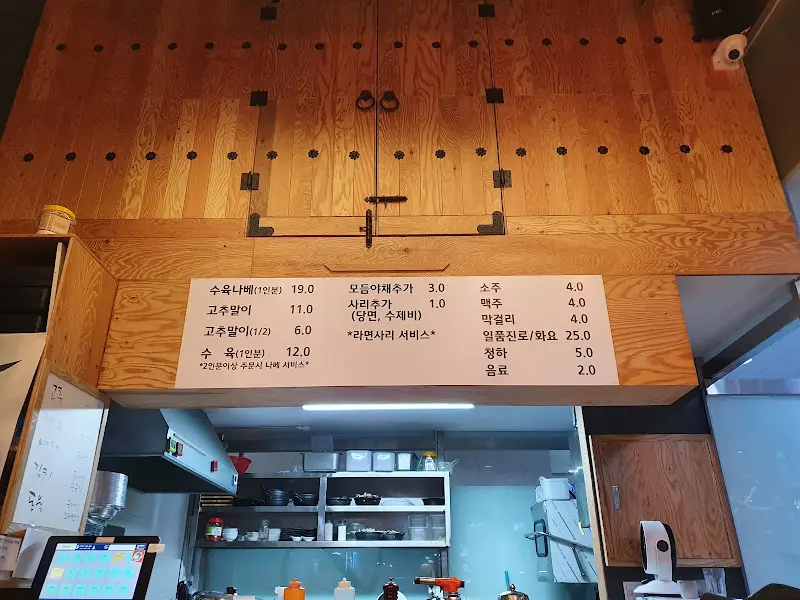 수육나베(1인분) 19.0
고추말이 11.0
고추말이(1/2) 6.0
수 육(1인분) 12.0
*2인분이상 주문시 나베 서비스*
모듬야채추가 3.0
사리추가 1.0
(당면, 수제비)
*라면사리 서비스*
소주 4.0
맥주 4.0
막걸리 4.0
일품진로/화요 25.0
청하 5.0
음료 2.0